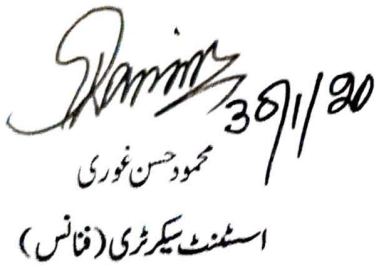 30/1/20
محمود حسن غوری
اسسٹنٹ سیکرٹری (فنانس)